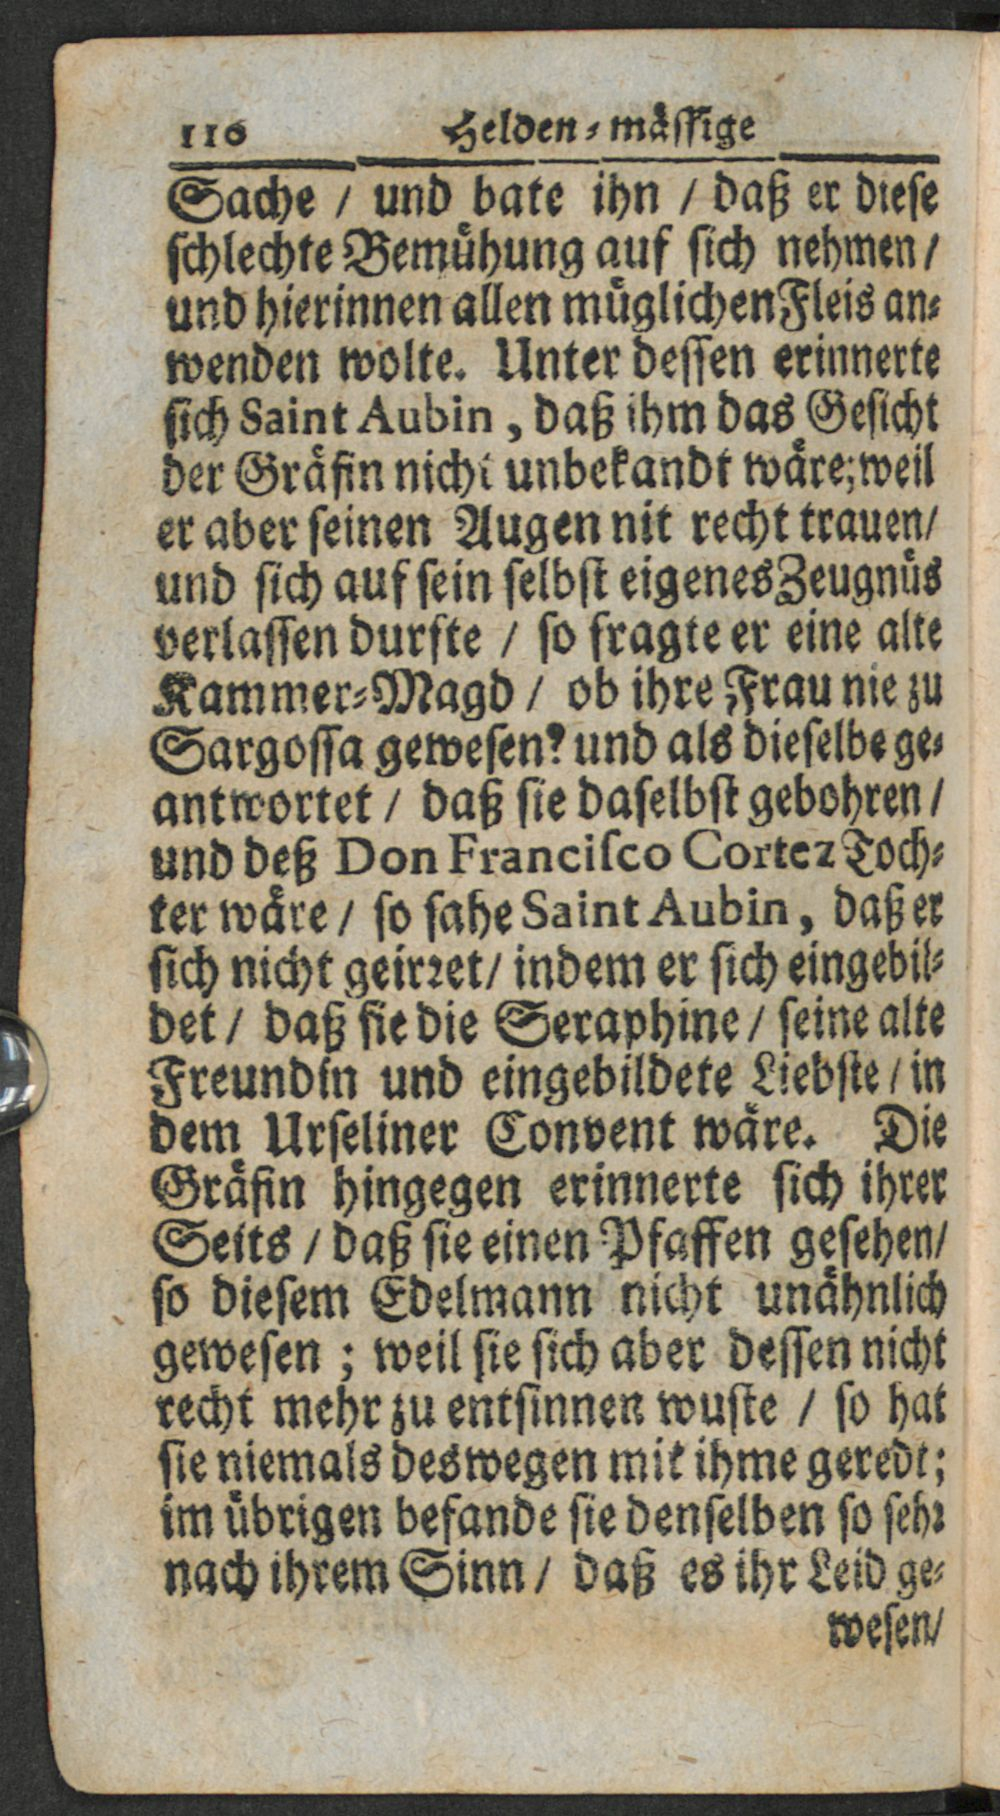 110 Helden-mässige
Sache / und bate ihn / daß er diese
schlechte Bemühung auf sich nehmen /
und hierinnen allen müglichen Fleis an-
wenden wolte. Unter dessen erinnerte
sich Saint Aubin, daß ihm das Gesicht
der Gräfin nicht unbekandt wäre; weil
er aber seinen Augen nit recht trauen/
und sich auf sein selbst eigenes Zeugnüs
verlassen durfte / so fragte er eine alte
Kammer-Magd / ob ihre Frau nie zu
Sargossa gewesen? und als dieselbe ge-
antwortet / daß sie daselbst gebohren /
und deß Don Francisco Cortez Toch-
ter wäre / so sahe Saint Aubin, daß er
sich nicht geirret/ indem er sich eingebil-
det / daß sie die Seraphine / seine alte
Freundin und eingebildete Liebste / in
dem Urseliner Convent wäre. Die
Gräfin hingegen erinnerte sich ihrer
Seits / daß sie einen Pfaffen gesehen/
so diesem Edelmann nicht unähnlich
gewesen ; weil sie sich aber dessen nicht
recht mehr zu entsinnen wuste / so hat
sie niemals deswegen mit ihme geredt;
im übrigen befande sie denselben so sehr
nach ihrem Sinn / daß es ihr Leid ge-
wesen/